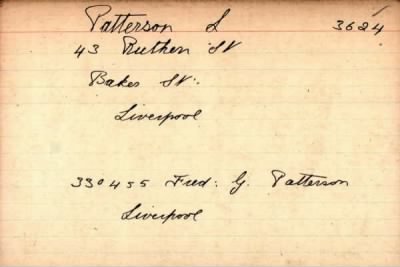 Patterson L 3624
43 Ruthen St
Baker St:
Liverpool
330455 Fred: G. Patterson
Liverpool